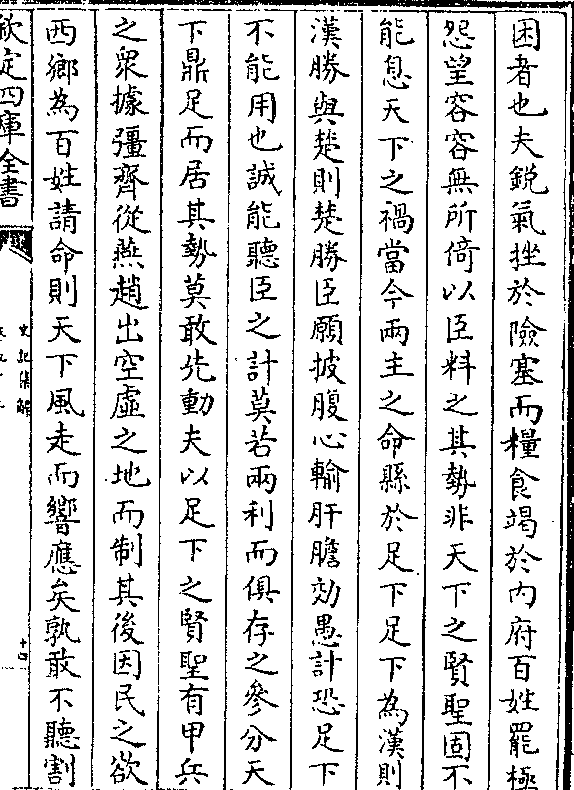 困者也夫銳氣挫於險塞而糧食竭於内府百姓罷極
怨望容容無所倚以臣料之其勢非天下之賢聖固不
能息天下之禍當今兩主之命縣於足下足下為漢則
漢勝與楚則楚勝臣願披腹心輸肝膽効愚計恐足下
不能用也誠能聽臣之計莫若兩利而俱存之參分天
下鼎足而居其勢莫敢先動夫以足下之賢聖有甲兵
之衆據彊齊從燕趙出空虛之地而制其後因民之欲
西鄉為百姓請命則天下風走而響應矣孰敢不聽割
欽定四庫全書
史記集解
十四